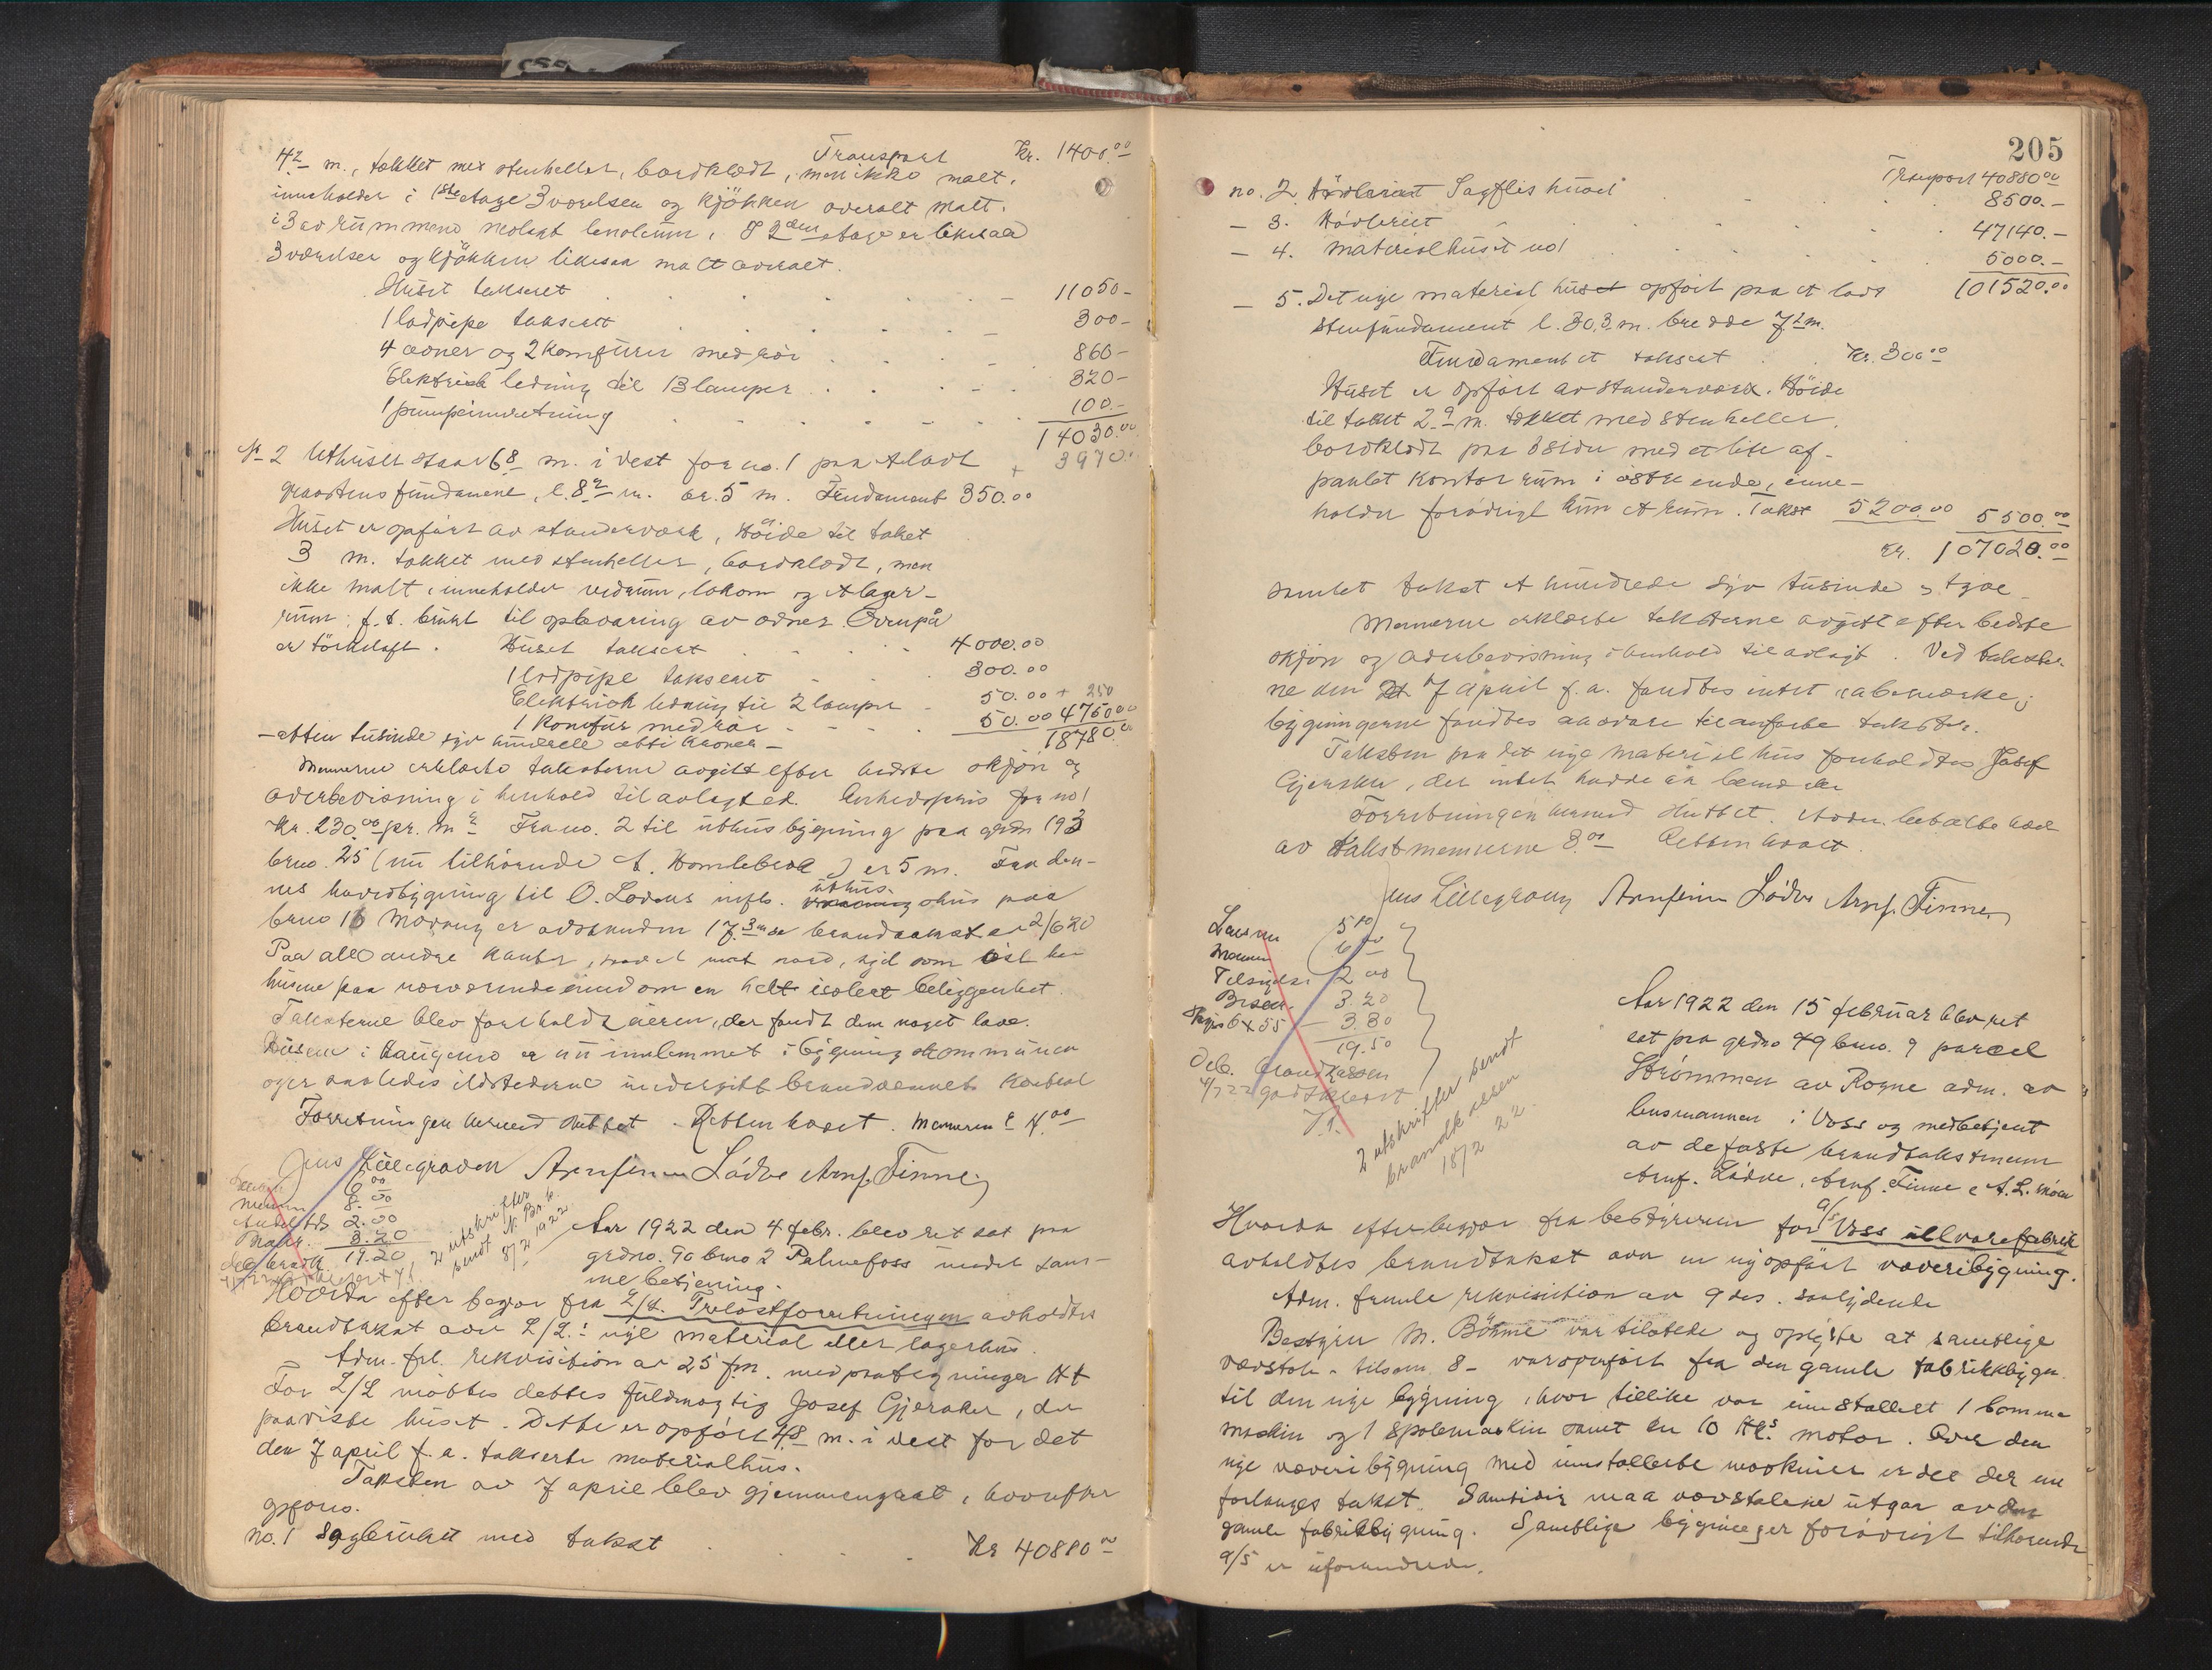 Transport Kr. 1400.00
4.2 m., tækket med stenheller, bordklædt, men ikke malt,
inneholder i 1ste etage 3 værelser og kjökken overalt malt.
i 3 av rummene nedlagt linoleum. I 2den etage er likesaa
3 værelser og kjökken likesaa malt overalt.
Huset taksert 11050-
1 ladpipe taksert 300-
4 ovner og 2 komfurer med rör 860-
Elektrisk ledning til 13 lamper 320-
1 pumpeinnretning 100.-
14030.00
No 2 Uthuset staar 6.8 m. i vest for no. 1 paa et lavt + 3970.
graastens fundament, l. 8.2 m. br. 5 m. Fundament 350.00
Huset er opfört av stenderverk, Höide til taket
3 m. tækket med stenheller, bordklædt, men
ikke malt, inneholder vedrum, lokom og et lager-
rum, f.t. brukt til opbevaring av ovner. Ovenpå
er törkeloft. Huset taksert 4000.00
1 ladpipe taksert 300.00
Elektrisk ledning til 2 lamper 50.00 + 250
1 komfur med rör 50.00 4750.00
- atten tusinde syv hundrede otti kroner - 18780.00
Mennerne erklærte taksterne avgitt efter bedste skjön og
overbevisning i henhold til avlagt ed. Enhedspris for no 1
Kr. 230.00 pr. m2 Fra no. 2 til uthusbygning paa grdn 193
brno. 25 (nu tilhörende A. Homlebrok) er 5 m. Fra den-
nes hovedbygning til O. Lodens uthus paa
brno 16 er avstanden 17.3 m se brandtakst av 2/6 20
Paa alle andre kanter, saavel mot nord, syd som öst har
husene paa nærværende eiendom en helt isolert beliggenhet.
Taksterne blev foreholdt eieren, der fandt dem noget lave.
Husene i Haugerne er nu innlemmet i bygningskommunen
og er saaledes ildstederne undergitt brandvæsenets kontrol
Forretningen hermed sluttet. Retten hævet. Mennene á 4.00
Jens Lillegraven Arnfinn Lödve Arnf. Finne
6.00
Mennene 8.00
2.00
3.20
19.20
2 utskrifter
sendt N. Br. k.
8/2 1922
Aar 1922 den 4 febr. blev ret sat paa
grdno. 90 brno 2 Palmefoss under sam-
me betjening.
Hvorda efter begjær fra L/L. Trelastforretningen avholdtes
brandtakst over L/L.s nye material eller lagerhus.
Adm. frl. rekvisition av 25 f.m. med paategninger
For L/L mötte dettes fuldmægtig Josef Gjeraker, der
paaviste huset. Dette er opfört 4.8 m. i vest for det
den 7 april f.a. takserte materialhus.
Taksten av 7 april blev gjennemgaat, hvorefter
opföres.
no. 1 Sagbruket med takst Kr 40880.00
205
Transport 40880.00
no. 2. Sagflis huset 8500.-
- 3. Hövleriet 47140.-
- 4. Materialhuset no 1 5000.-
101520.00
- 5. Det nye material huset opfört paa et lavt
stenfundament l. 30.3 m. bredde 7.2 m.
Fundamentet taksert Kr. 300.00
Huset er opfört av stenderverk. Höide
til taket 2.9 m. tækket med stenheller,
bordklædt paa 3 sider med et lite af-
panlet kontorrum i östre ende, inne-
holder forövrigt kun et rum. Takst 5200.00 5500.00
Kr. 107020.00
samlet takst et hundrede syv tusinde og tyve
Mennerne erklærte taksterne avgitt efter bedste
skjön og overbevisning i henhold til avlagt. Ved takster-
ne den 7 april f.a. fandtes intet at bemerke,
bygningerne fandtes at svare til ansatte takster.
Taksten paa det nye material hus foreholdtes Josef
Gjeraker, der intet hadde at bemerke
Forretningen hermed sluttet. betalte hver
av takstmennerne 3.00 Retten hævet.
Jens Lillegraven Arnfinn Lödve Arnf. Finne
Lensm 5.50
Mennene 6.00
Tilsigelse 2.00
3.20
6 x 55 3.80
19.50
Deb. brandkassen
2 utskrifter sendt
brandkassen
18/2 22.
Aar 1922 den 15 februar blev ret
sat paa grdno 49 brno. 9 parcel
Strömmen av Rogne adm. av
lensmannen i Voss og medbetjent
av de faste brandtakstmenn
Arnf. Lödve, Arnf. Finne & A. L. Möen
Hvorda efter begjær fra bestyreren for A/S Voss ullvarefabrik
avholdtes brandtakst over en nyopfört væveribygning.
Adm. fremla rekvisition av 9 ds. saalydende
Bestyrer M. Böhme var tilstede og oplyste at samtlige
vævstole - tilsam. 8 - var opført fra den gamle fabrikkbygn.
til den nye bygning, hvor tillike var innstallert 1 bomme-
maskin og 1 spolemaskin samt en 10 Hk's motor. Over den
nye væveribygning med innstallerte maskiner er det der nu
forlanges takst. Samtidig maa vævstolene utgaa av den
gamle fabrikbygning. Samtlige bygninger forövrigt tilhörende
A/S er uforandrede.